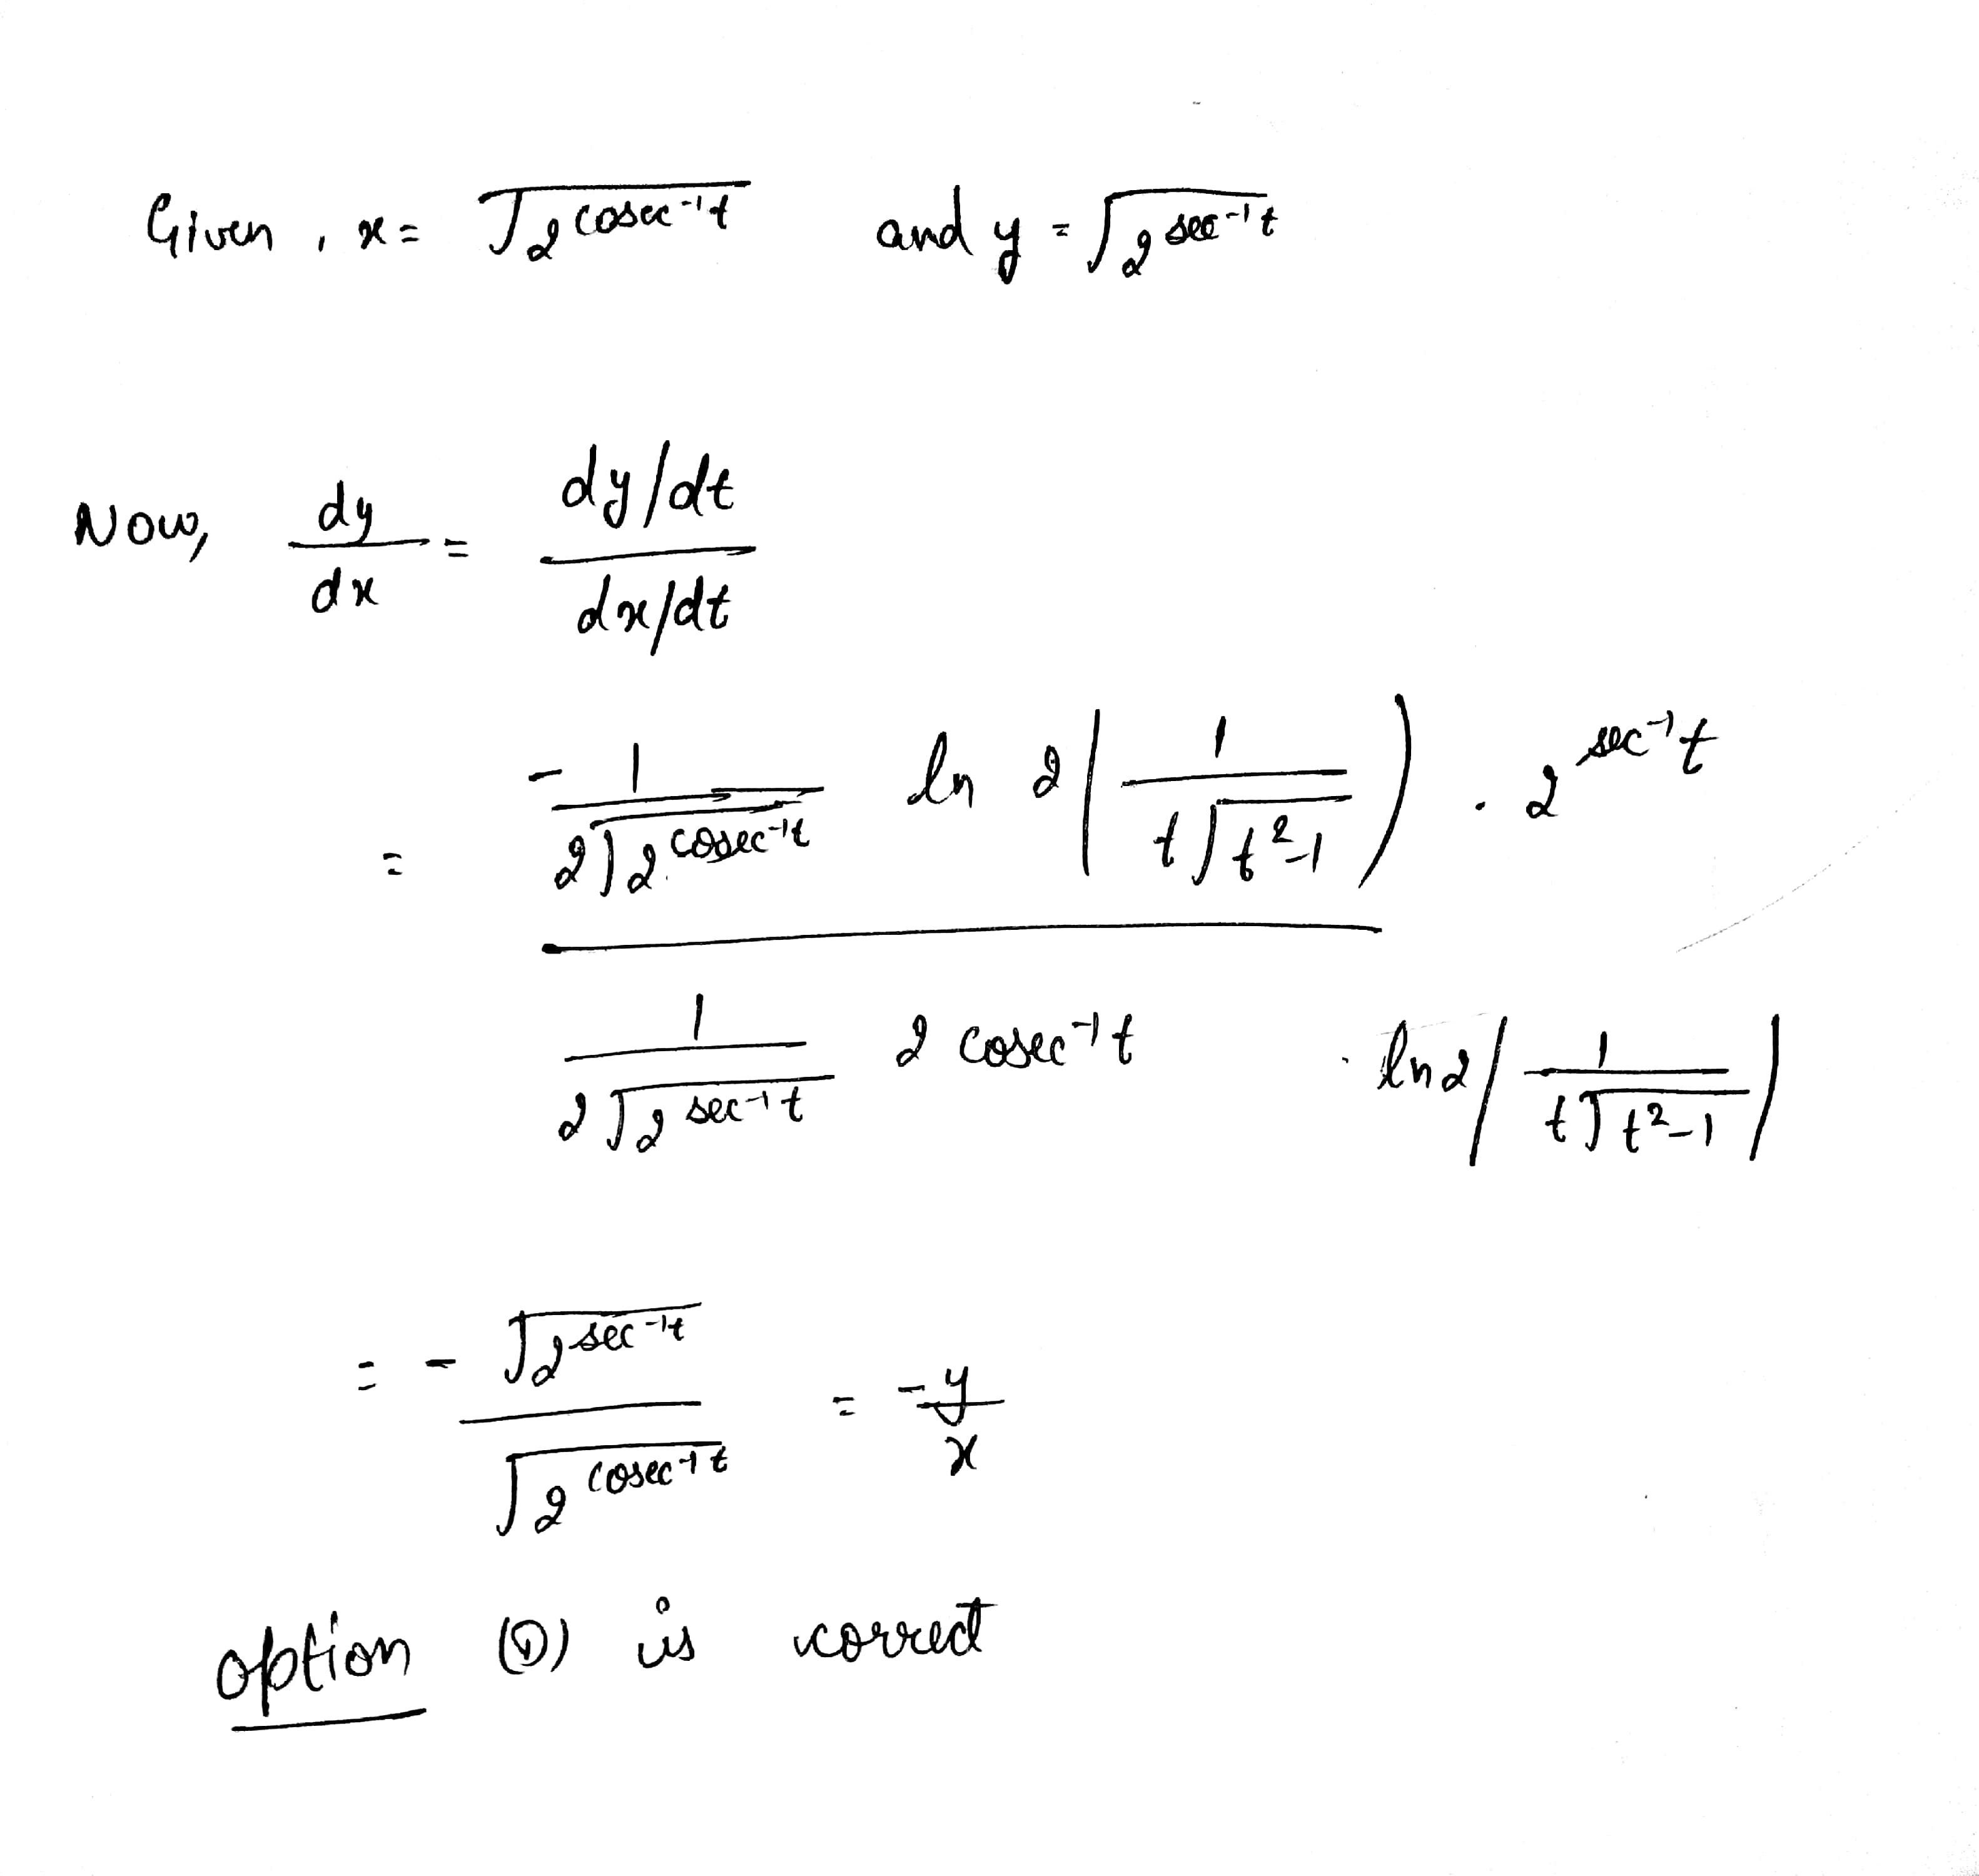 Given , x = √(2^(cosec⁻¹t)) and y = √(2^(sec⁻¹t))
Now, dy/dx = (dy/dt)/(dx/dt)
= - 1/(2√(2^(cosec⁻¹t))) ln 2 (1/(t√(t²-1))) . 2^(sec⁻¹t)
1/(2√(2^(sec⁻¹t))) 2 cosec⁻¹t . ln2 (1/(t√(t²-1)))
= - √(2^(sec⁻¹t)) / √(2^(cosec⁻¹t)) = -y/x
option (D) is correct